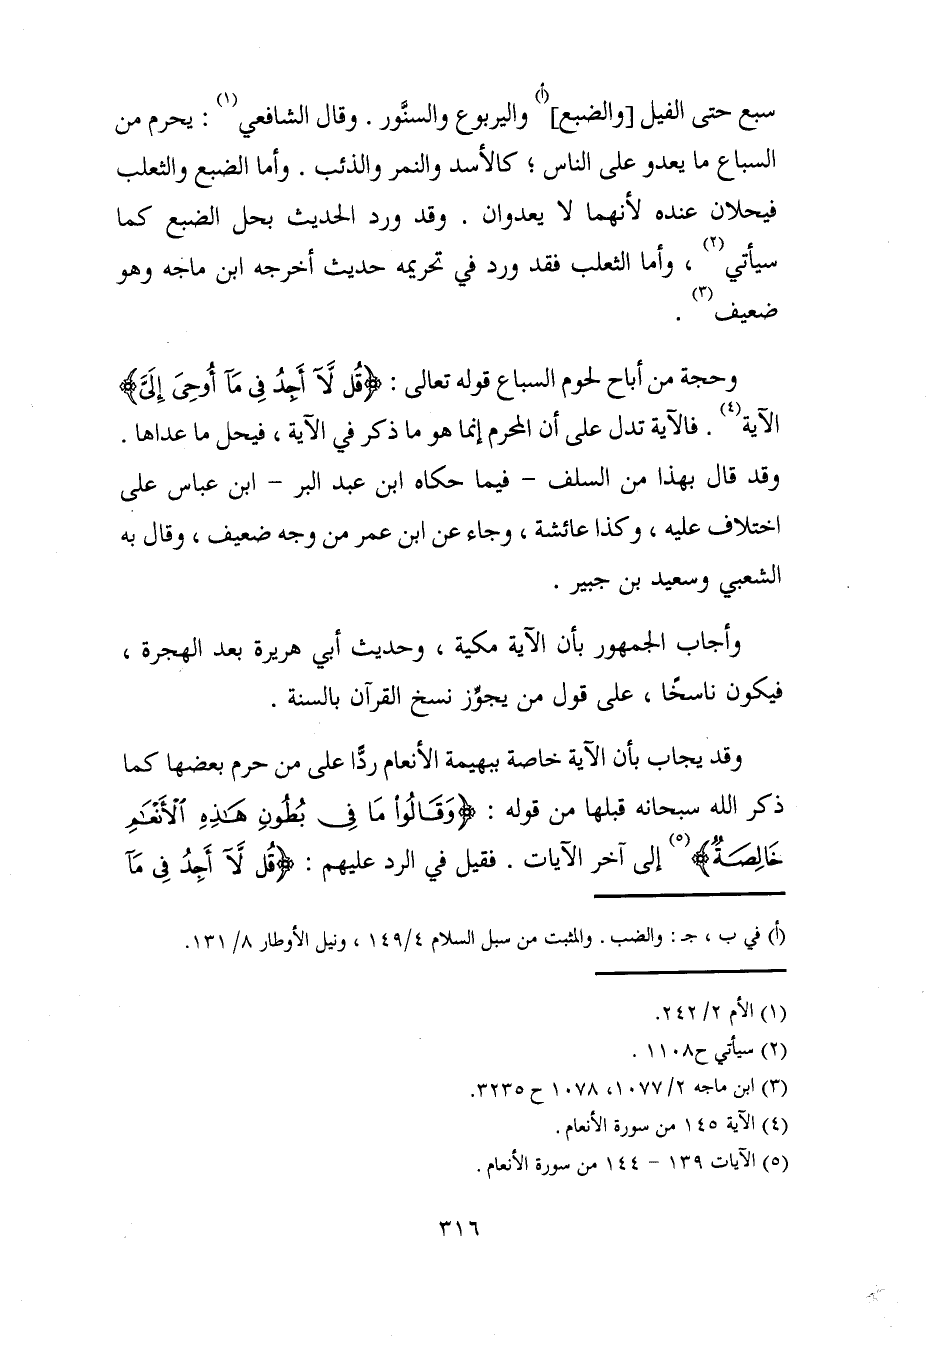 سبع حتى الفيل [والضبع](أ) واليربوع والسنَّور . وقال الشافعي(١) : يحرم من
السباع ما يعدو على الناس ؛ كالأسد والنمر والذئب . وأما الضبع والثعلب
فيحلان عنده لأنهما لا يعدوان . وقد ورد الحديث بحل الضبع كما
سيأتي(٢) ، وأما الثعلب فقد ورد في تحريمه حديث أخرجه ابن ماجه وهو
ضعيف(٣) .
وحجة من أباح لحوم السباع قوله تعالى : ﴿قُل لَّآ أَجِدُ فِى مَآ أُوحِىَ إِلَىَّ﴾
الآية(٤) . فالآية تدل على أن المحرم إنما هو ما ذكر في الآية ، فيحل ما عداها .
وقد قال بهذا من السلف – فيما حكاه ابن عبد البر – ابن عباس على
اختلاف عليه ، وكذا عائشة ، وجاء عن ابن عمر من وجه ضعيف ، وقال به
الشعبي وسعيد بن جبير .
وأجاب الجمهور بأن الآية مكية ، وحديث أبي هريرة بعد الهجرة ،
فيكون ناسخًا ، على قول من يجوِّز نسخ القرآن بالسنة .
وقد يجاب بأن الآية خاصة ببهيمة الأنعام ردًّا على من حرم بعضها كما
ذكر الله سبحانه قبلها من قوله : ﴿وَقَالُواْ مَا فِى بُطُونِ هَٰذِهِ ٱلْأَنْعَٰمِ
خَالِصَةٌ﴾(٥) إلى آخر الآيات . فقيل في الرد عليهم : ﴿قُل لَّآ أَجِدُ فِى مَآ
(أ) في ب ، جـ : والضب . والمثبت من سبل السلام ١٤٩/٤ ، ونيل الأوطار ٨/ ١٣١.
(١) الأم ٢/ ٢٤٢.
(٢) سيأتي ح١١٠٨ .
(٣) ابن ماجه ٢/ ١٠٧٧، ١٠٧٨ ح ٣٢٣٥.
(٤) الآية ١٤٥ من سورة الأنعام .
(٥) الآيات ١٣٩ – ١٤٤ من سورة الأنعام .
٣١٦